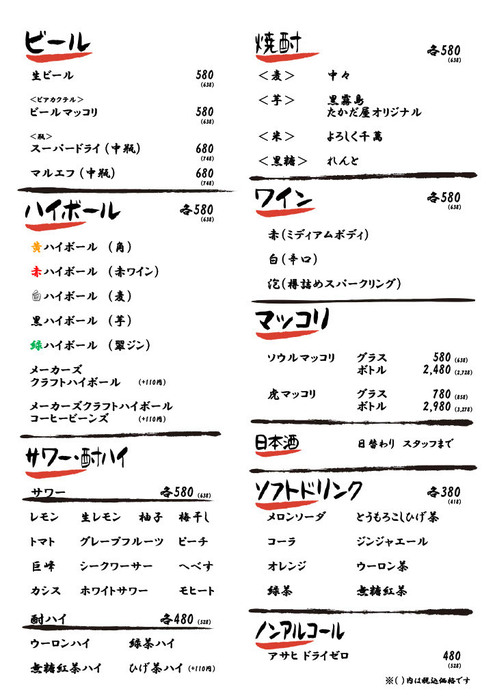 ビール
生ビール 580 (638)
<ビアカクテル>
ビールマッコリ 580 (638)
<瓶>
スーパードライ(中瓶) 680 (748)
マルエフ(中瓶) 680 (748)
ハイボール 各580 (638)
黄ハイボール (角)
赤ハイボール (赤ワイン)
白ハイボール (麦)
黒ハイボール (芋)
緑ハイボール (翠ジン)
メーカーズ
クラフトハイボール (+110円)
メーカーズクラフトハイボール
コーヒービーンズ (+110円)
サワー・酎ハイ
サワー 各580 (638)
レモン 生レモン 柚子 梅干し
トマト グレープフルーツ ピーチ
巨峰 シークワーサー へべす
カシス ホワイトサワー モヒート
酎ハイ 各480 (528)
ウーロンハイ 緑茶ハイ
無糖紅茶ハイ ひげ茶ハイ (+110円)
焼酎 各580 (638)
<麦> 中々
<芋> 黒霧島
たかだ屋オリジナル
<米> よろしく千萬
<黒糖> れんと
ワイン 各580 (638)
赤(ミディアムボディ)
白(辛口)
泡(樽詰めスパークリング)
マッコリ
ソウルマッコリ グラス 580 (638)
ボトル 2,480 (2,728)
虎マッコリ グラス 780 (858)
ボトル 2,980 (3,278)
日本酒 日替わり スタッフまで
ソフトドリンク 各380 (418)
メロンソーダ とうもろこしひげ茶
コーラ ジンジャエール
オレンジ ウーロン茶
緑茶 無糖紅茶
ノンアルコール
アサヒ ドライゼロ 480 (528)
※( )内は税込価格です